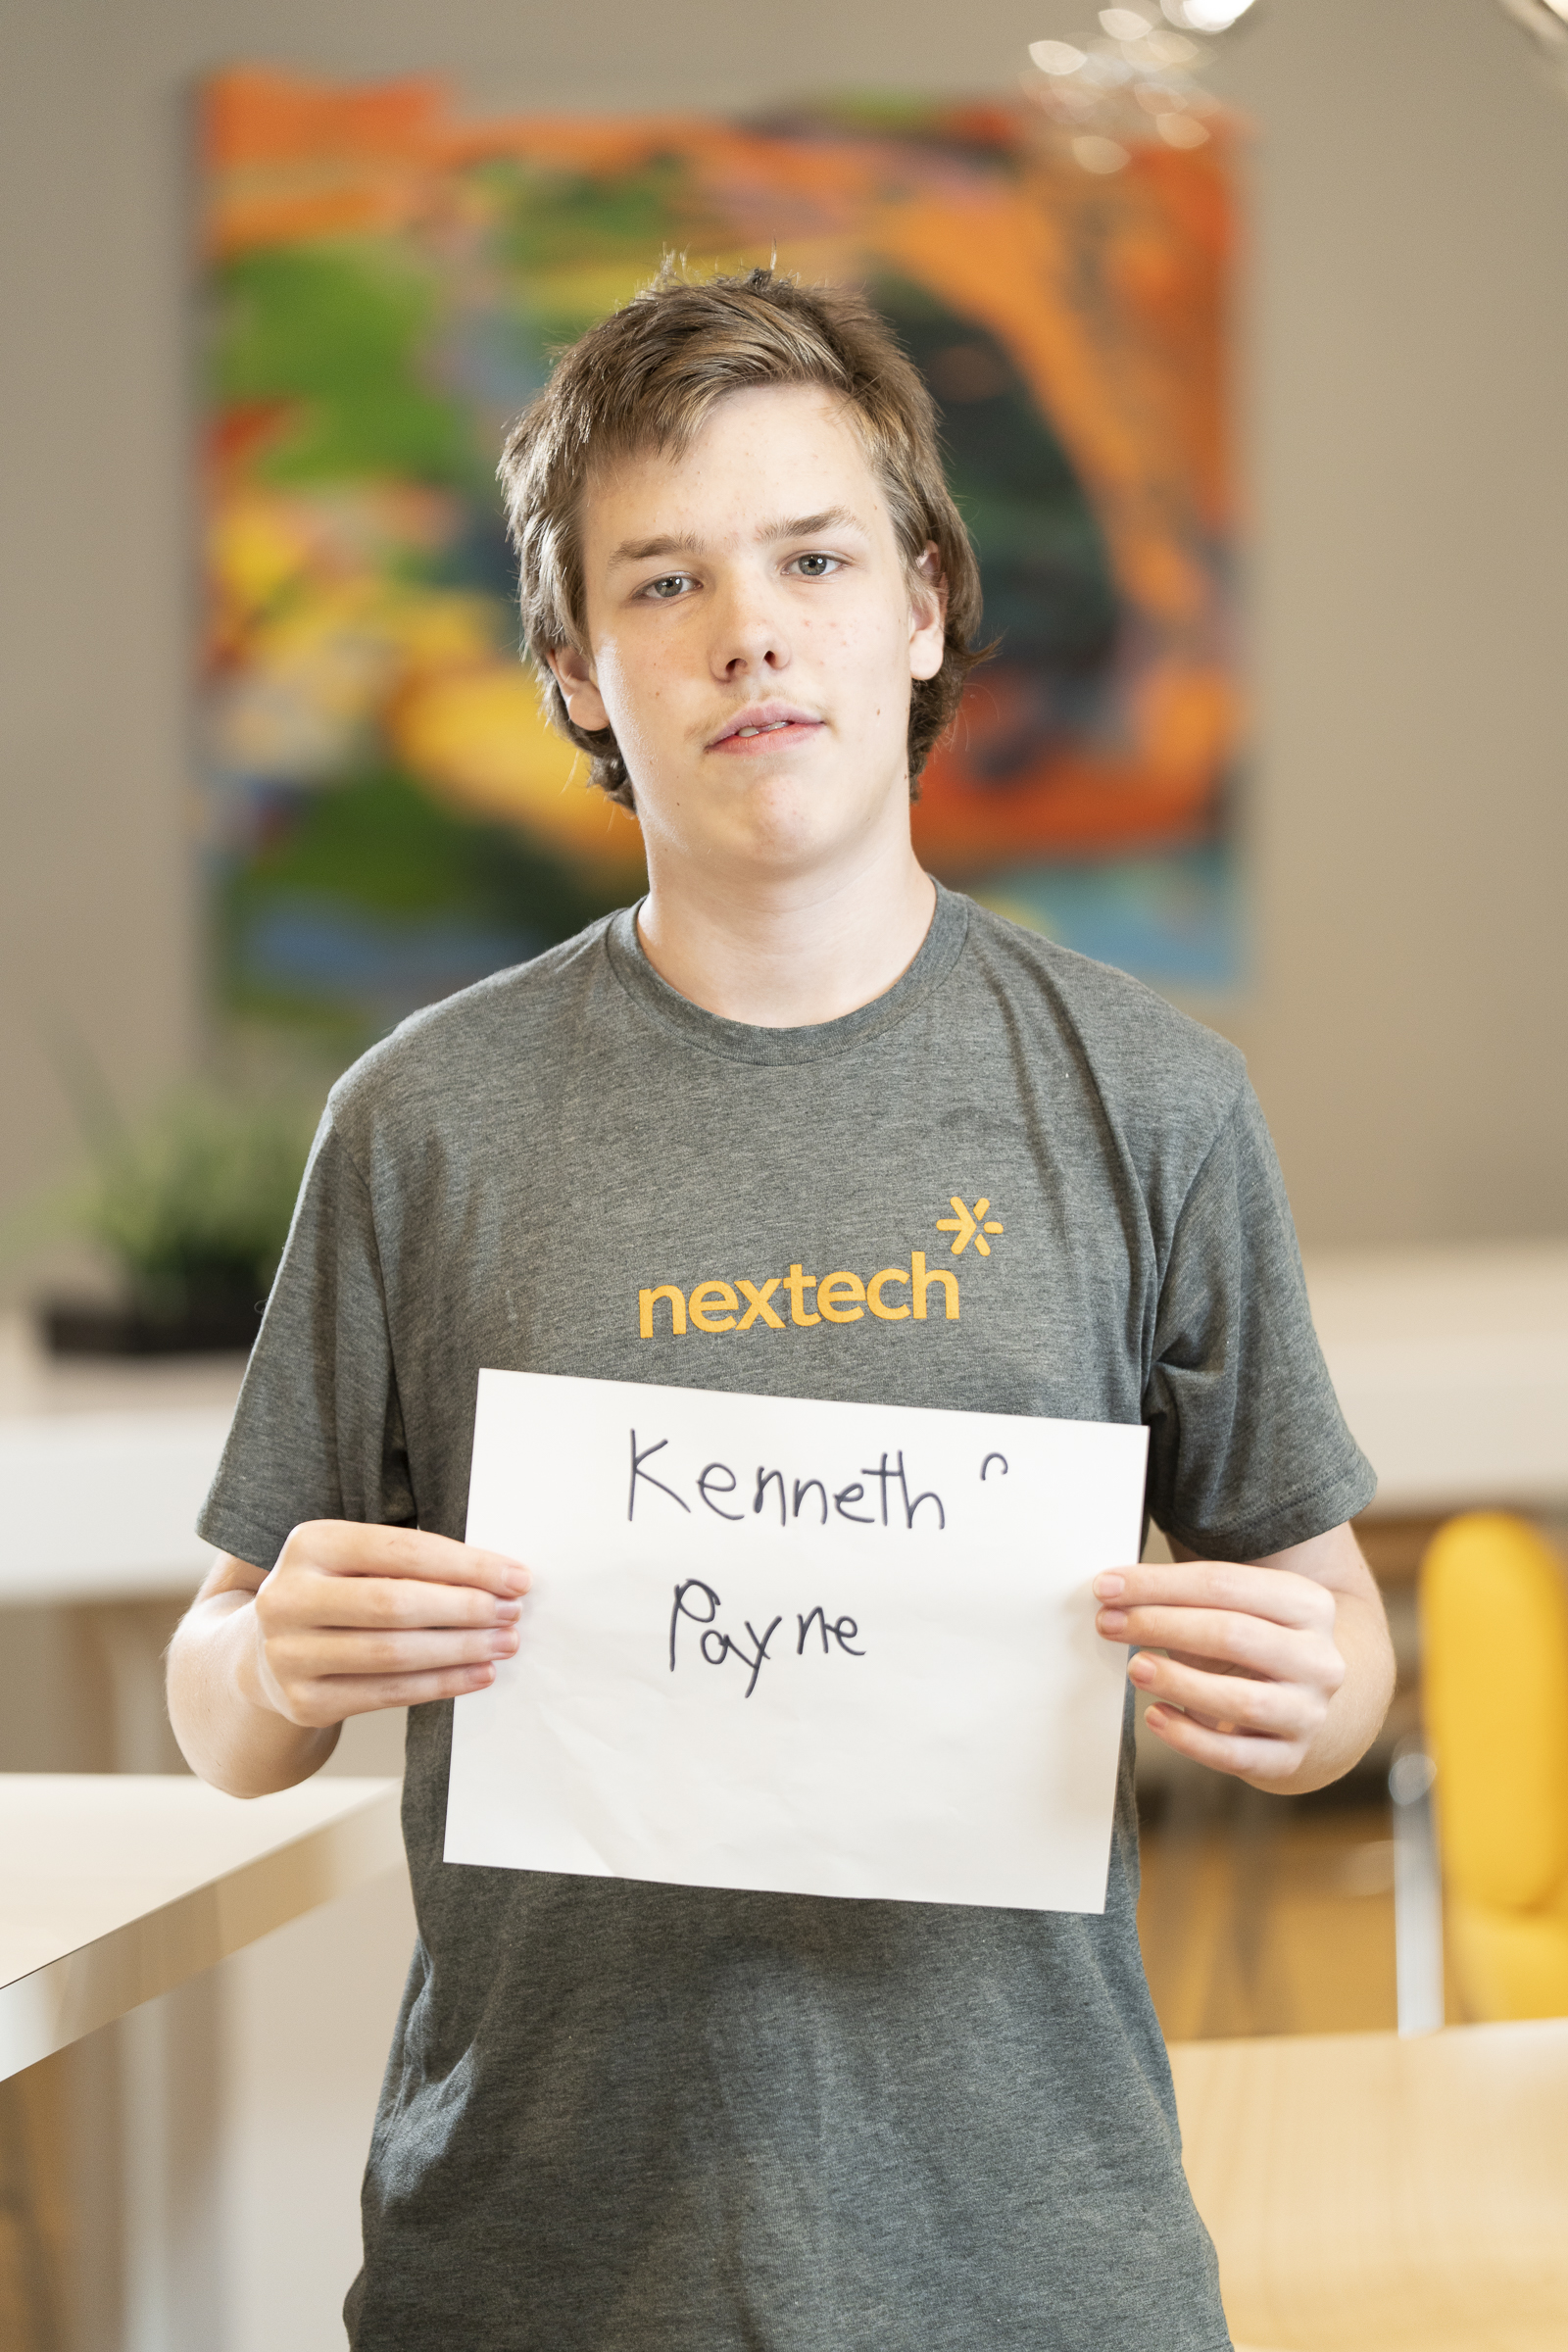 nextech
Kenneth
Payne